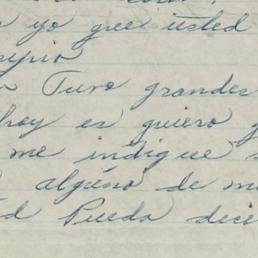 yo gree usted
Tuvo grandes
hoy es quiero
me indique
algúno de m
Pueda deci